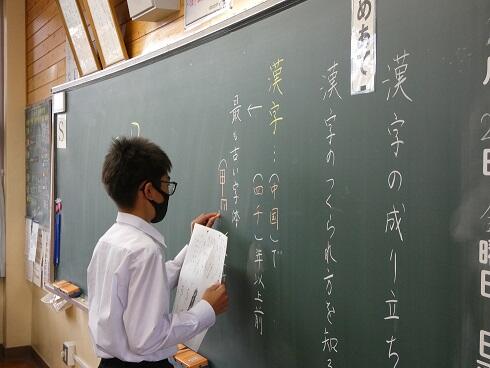 日 金曜日
めあて
漢字の成り立ち
漢字のつくられ方を知る
漢字…(中国)で
(四千)年以上前
←
最も古い字体
S